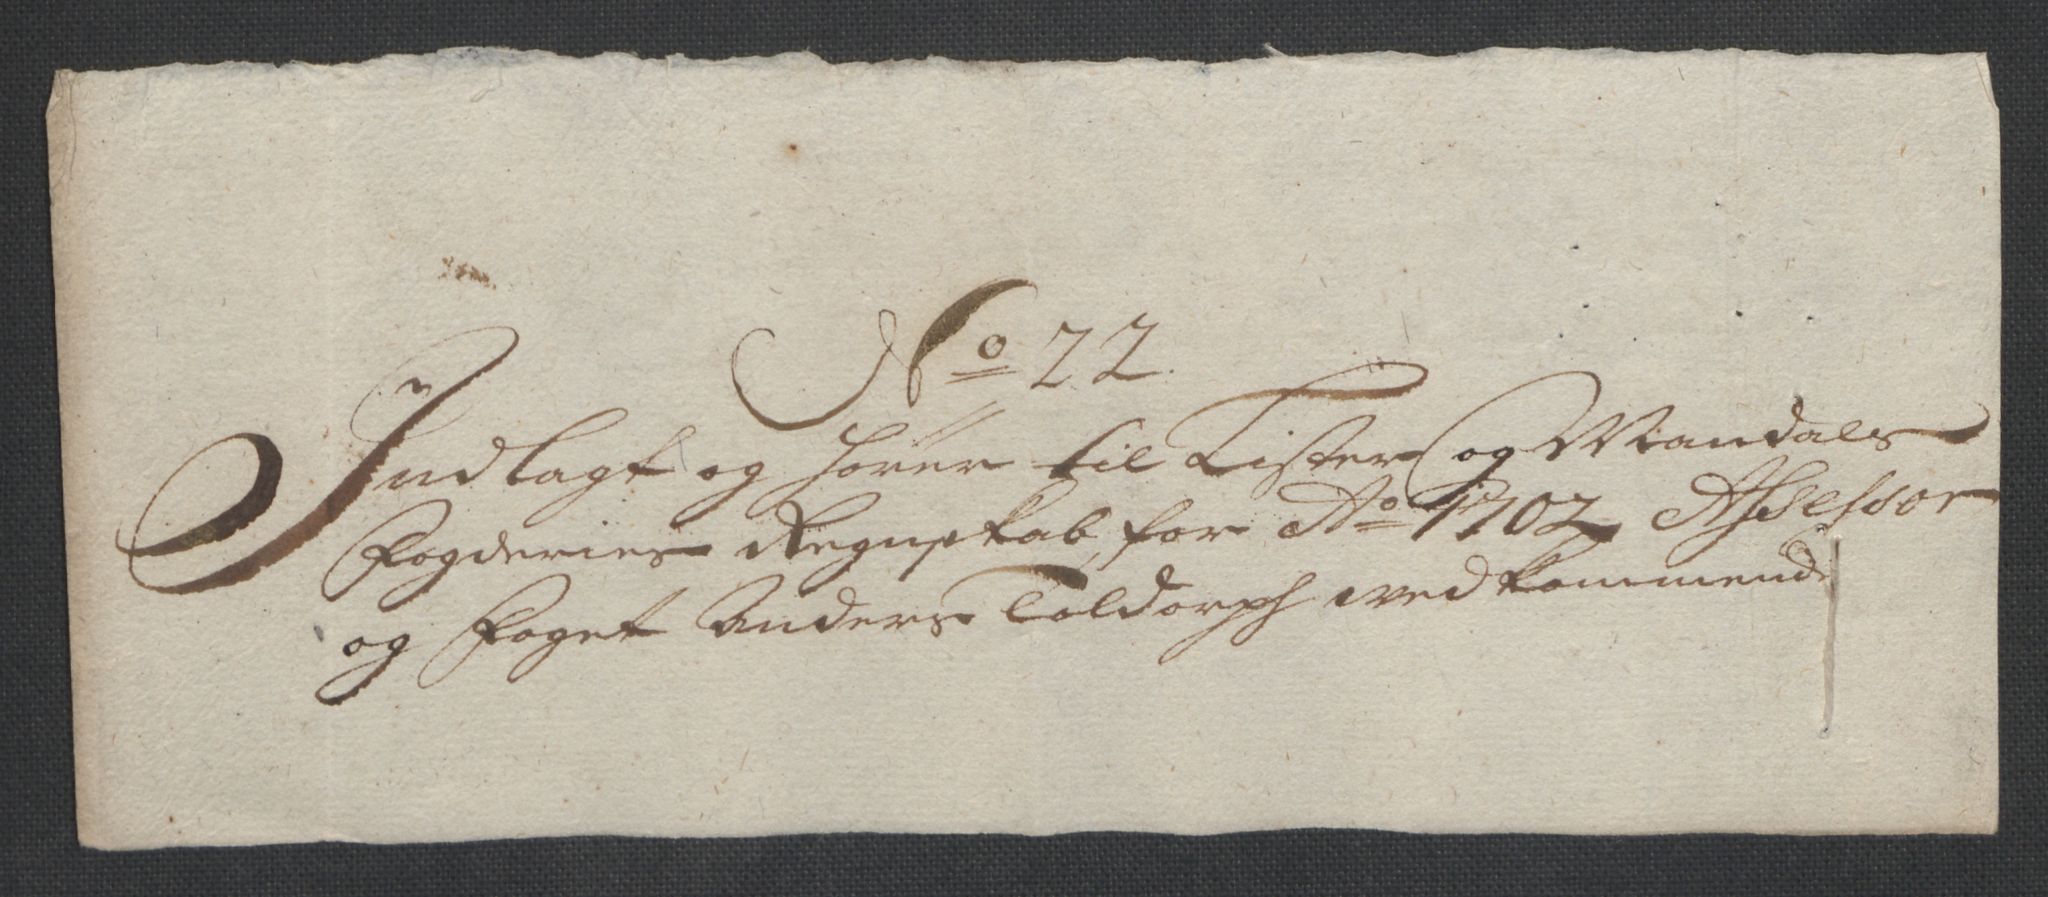 No 22
Indlagt og hører til Lister og Mandals
Fogderies Regnskab, for Ao 1702 Assessor
og Foget Anders Toldorph vedkommende